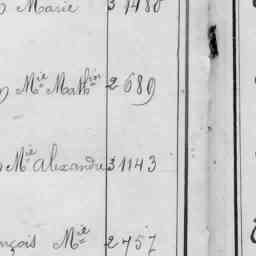 Marie 3 1480
Mie Mathin 2 689
Mie Alexandre 3 1143
nçois Mie 2 757